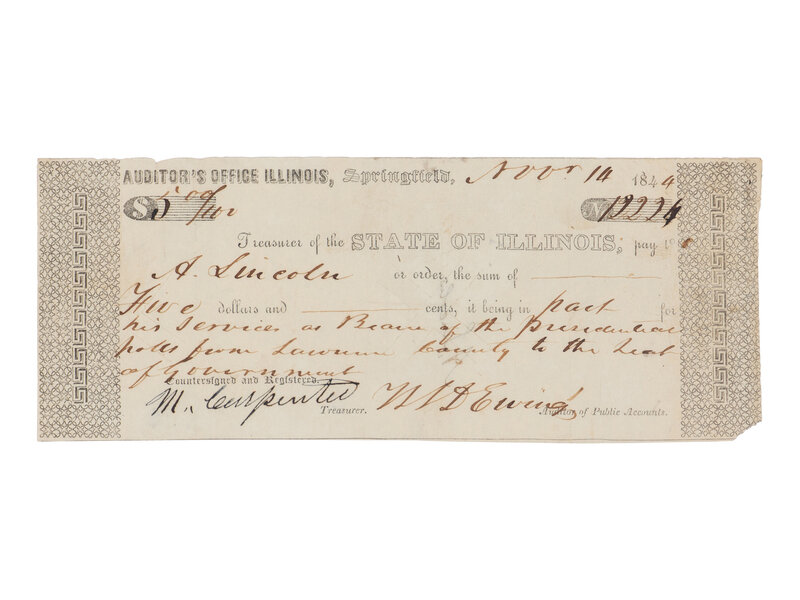 AUDITOR'S OFFICE ILLINOIS, Springfield, Novr 14 1844
$5 00/100 No 12224
Treasurer of the STATE OF ILLINOIS, pay to
A. Lincoln or order, the sum of
Five dollars and cents, it being in part for
his services as Bearer of the Presidential
polls from Lawrence County to the Seat
of Government
Countersigned and Registered.
M. Carpenter Treasurer. W L D Ewing Auditor of Public Accounts.